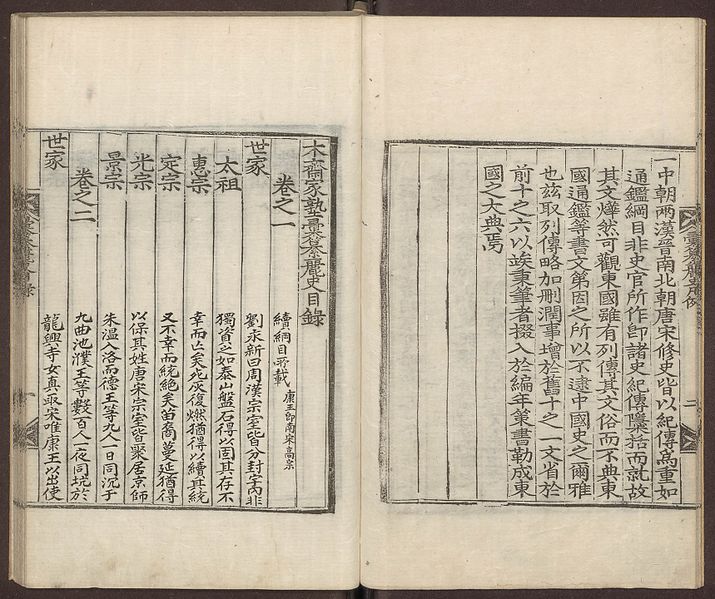 彙纂麗史凡例 二
一中朝兩漢晉南北朝唐宋修史皆以紀傳爲重如
通鑑綱目非史官所作卽諸史紀傳檃括而就故
其文燁然可觀東國雖有列傳其文俗而不典東
國通鑑等書文第因之所以不逮中國史之爾雅
也玆取列傳略加刪潤事增於舊十之一文省於
前十之六以竢秉筆者掇入於編年策書勒成東
國之大典焉
木齋家塾彙纂麗史目錄
卷之一 續綱目所載 康王卽南宋高宗
世家 劉永新曰周漢宗室皆百分封宇內非
太祖 獨資之如泰山盤石得以固其存不
惠宗 幸而亡矣死灰復燃猶得以續其統
定宗 又不幸而統絕矣苗裔蔓延猶得
光宗 以保其姓唐宋宗室皆聚居京師
景宗 朱溫入洛而德王等九人一日同沉于
卷之二 九曲池濮王等數百人一夜同坑於
世家 龍興寺女真取宋唯康王以出使